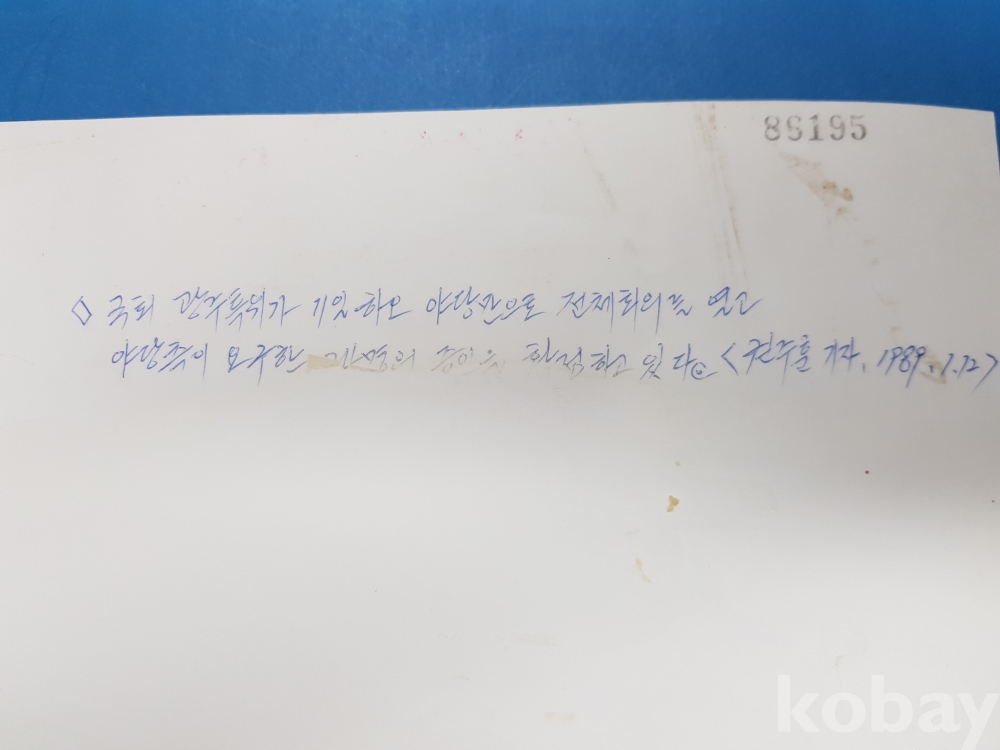 86195
◇ 국회 광주특위가 12일 하오 야당만으로 전체회의를 열고
야당측이 요구한 증인을 확정하고 있다. <권주훈 기자. 1989. 1. 12>
kobay